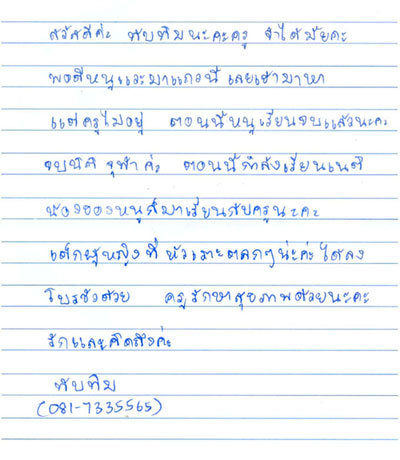 สวัสดีค่ะ ทับทิมนะคะครู จำได้มั้ยคะ
พอดีหนูแวะมาแถวนี้ เลยเข้ามาหา
แต่ครูไม่อยู่ ตอนนี้หนูเรียนจบแล้วนะคะ
จบนิติ จุฬาค่ะ ตอนนี้กำลังเรียนเนติ
น้องของหนูก็มาเรียนกับครูนะคะ
เด็กผู้หญิงที่หัวเราะตลกๆน่ะค่ะ ได้ลง
โบรชัวด้วย ครูรักษาสุขภาพด้วยนะคะ
รักและคิดถึงค่ะ
ทับทิม
(081-7335565)